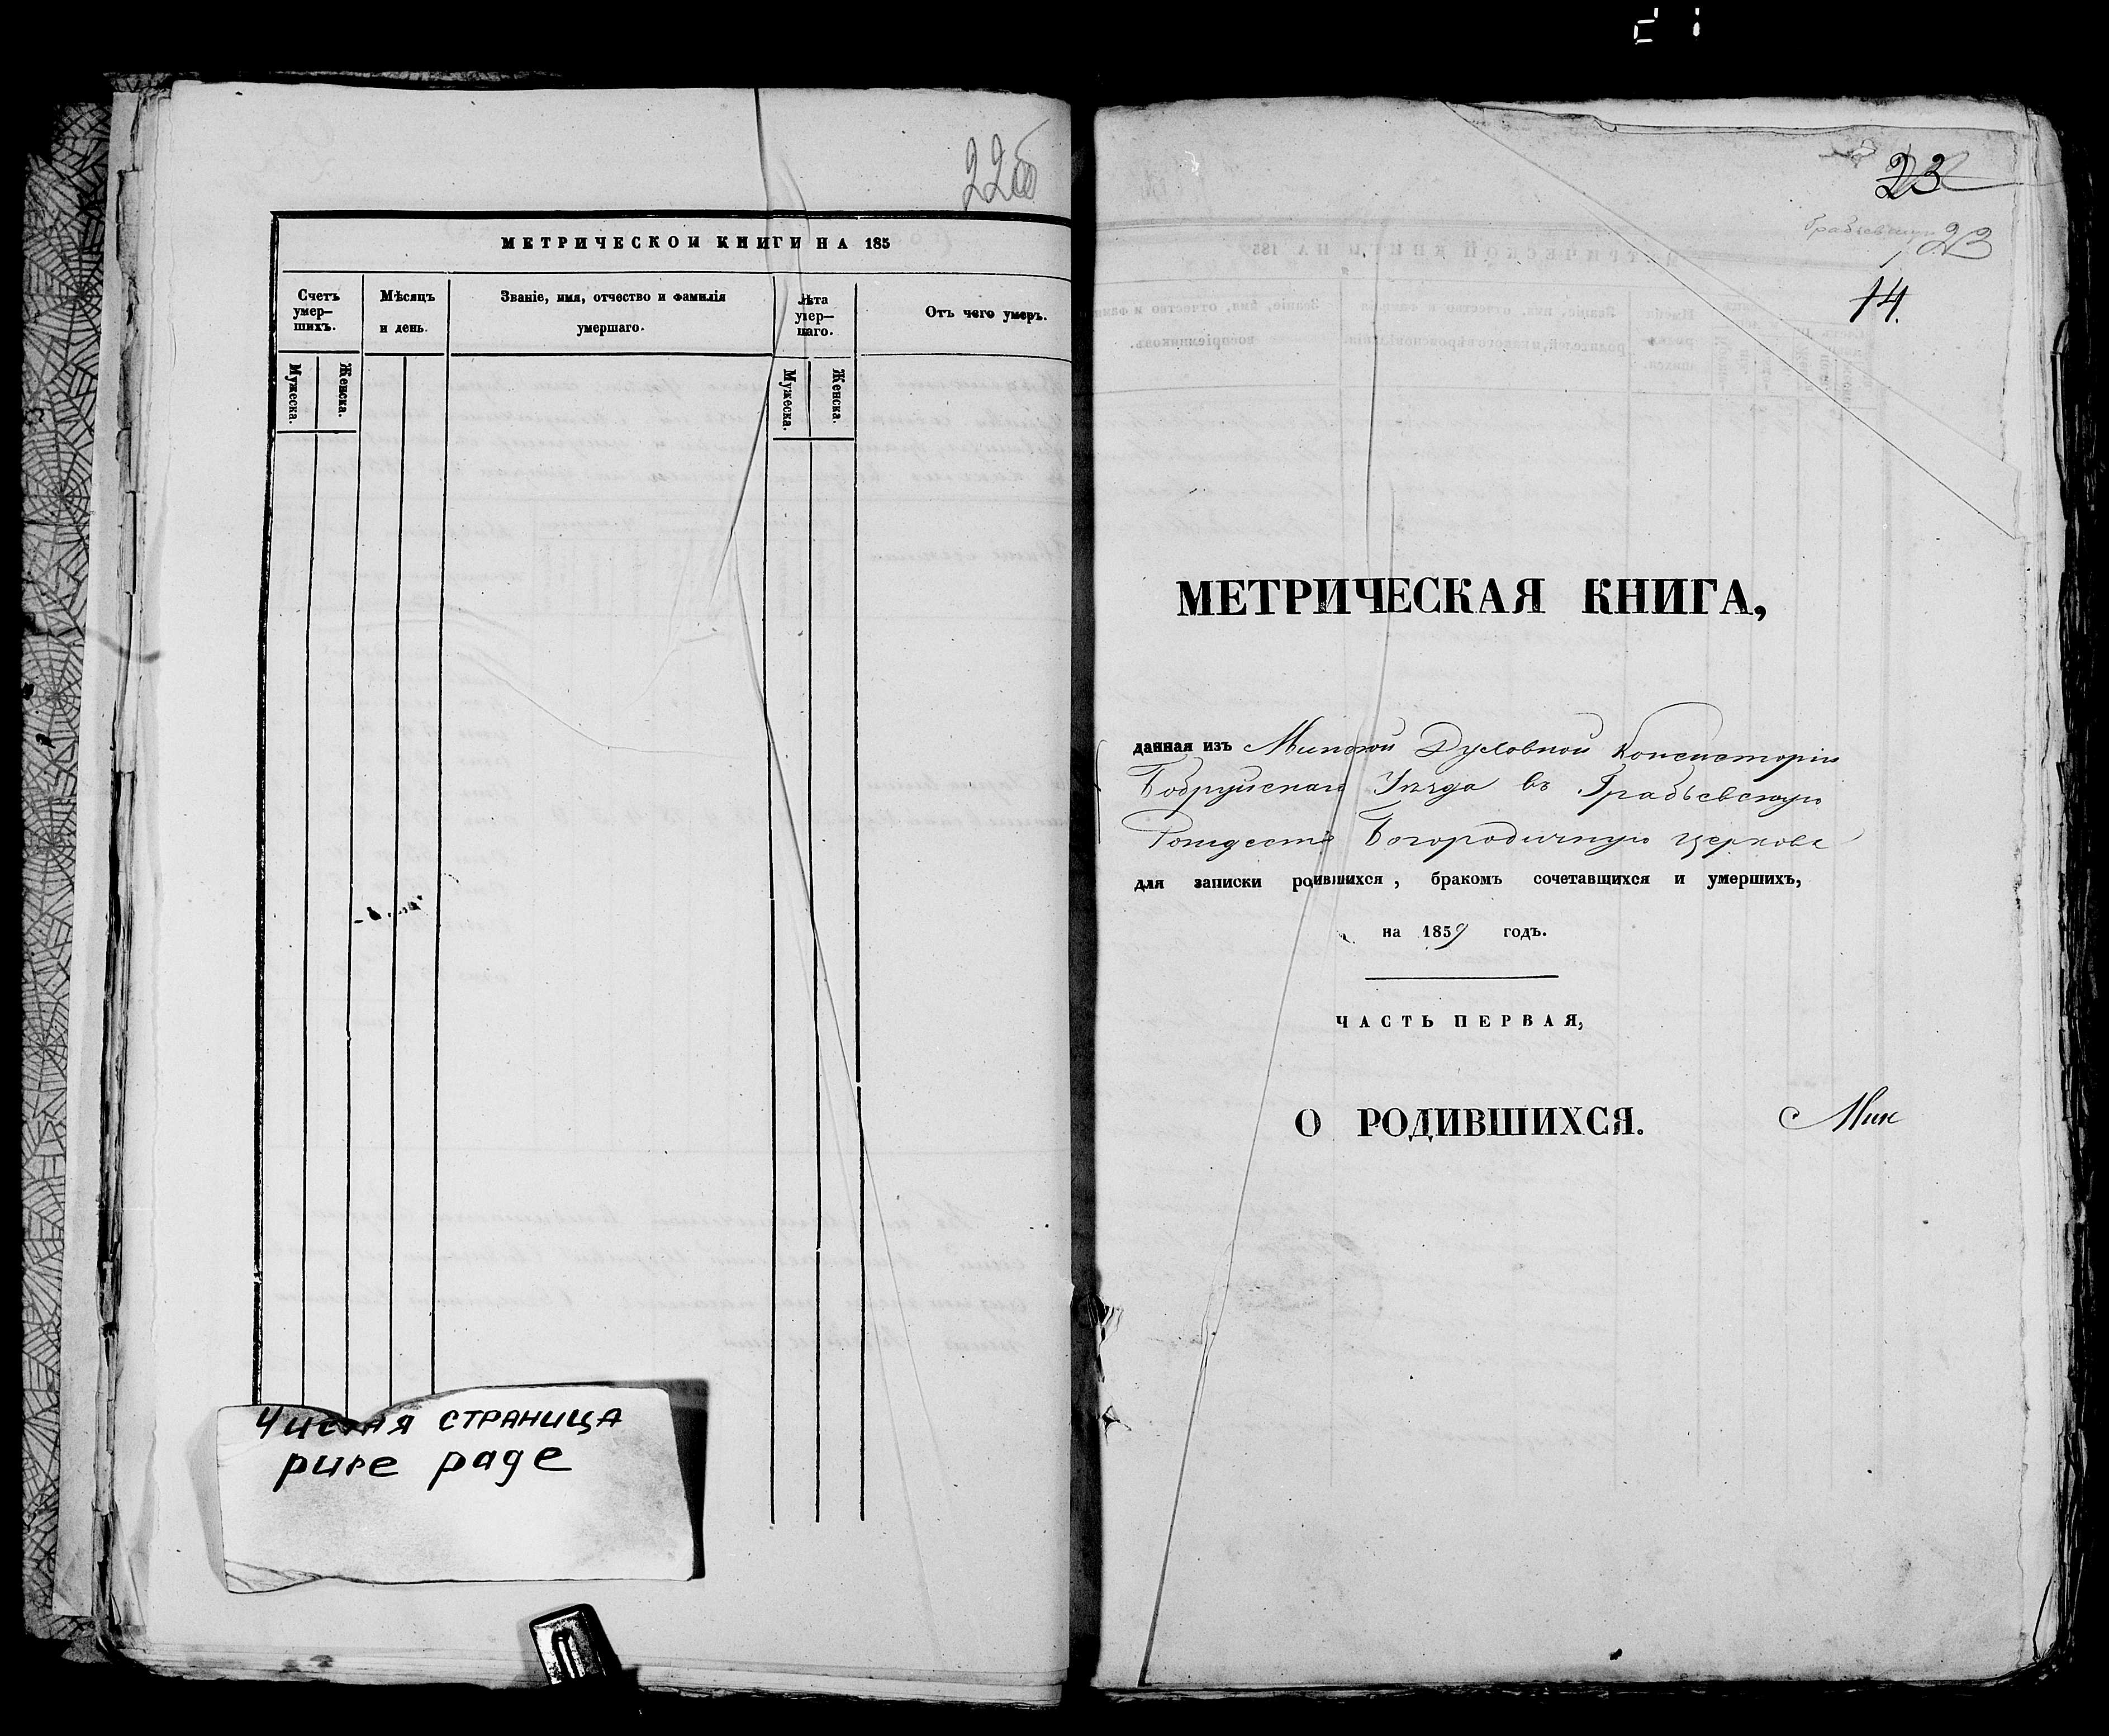 22об
МЕТРИЧЕСКОЙ КНИГИ НА 185
Счетъ умер—шихъ.
Мѣсяцъ и день.
Званіе, имя, отчество и фамилія умершаго.
Лѣта умер—шаго.
Отъ чего умеръ.
Мужеска.
Женска.
Мужеска.
Женска.
Чистая страница
pure page
23
Грабьевскую 23
14.
МЕТРИЧЕСКАЯ КНИГА,
данная изъ Минской Духовной Консисторіи
Бобруйскаго Уѣзда въ Грабьевскую
Рождество Богородичную церковь
для записки родившихся, бракомъ сочетавшихся и умершихъ,
на 1859 годъ.
ЧАСТЬ ПЕРВАЯ,
О РОДИВШИХСЯ.
Мин